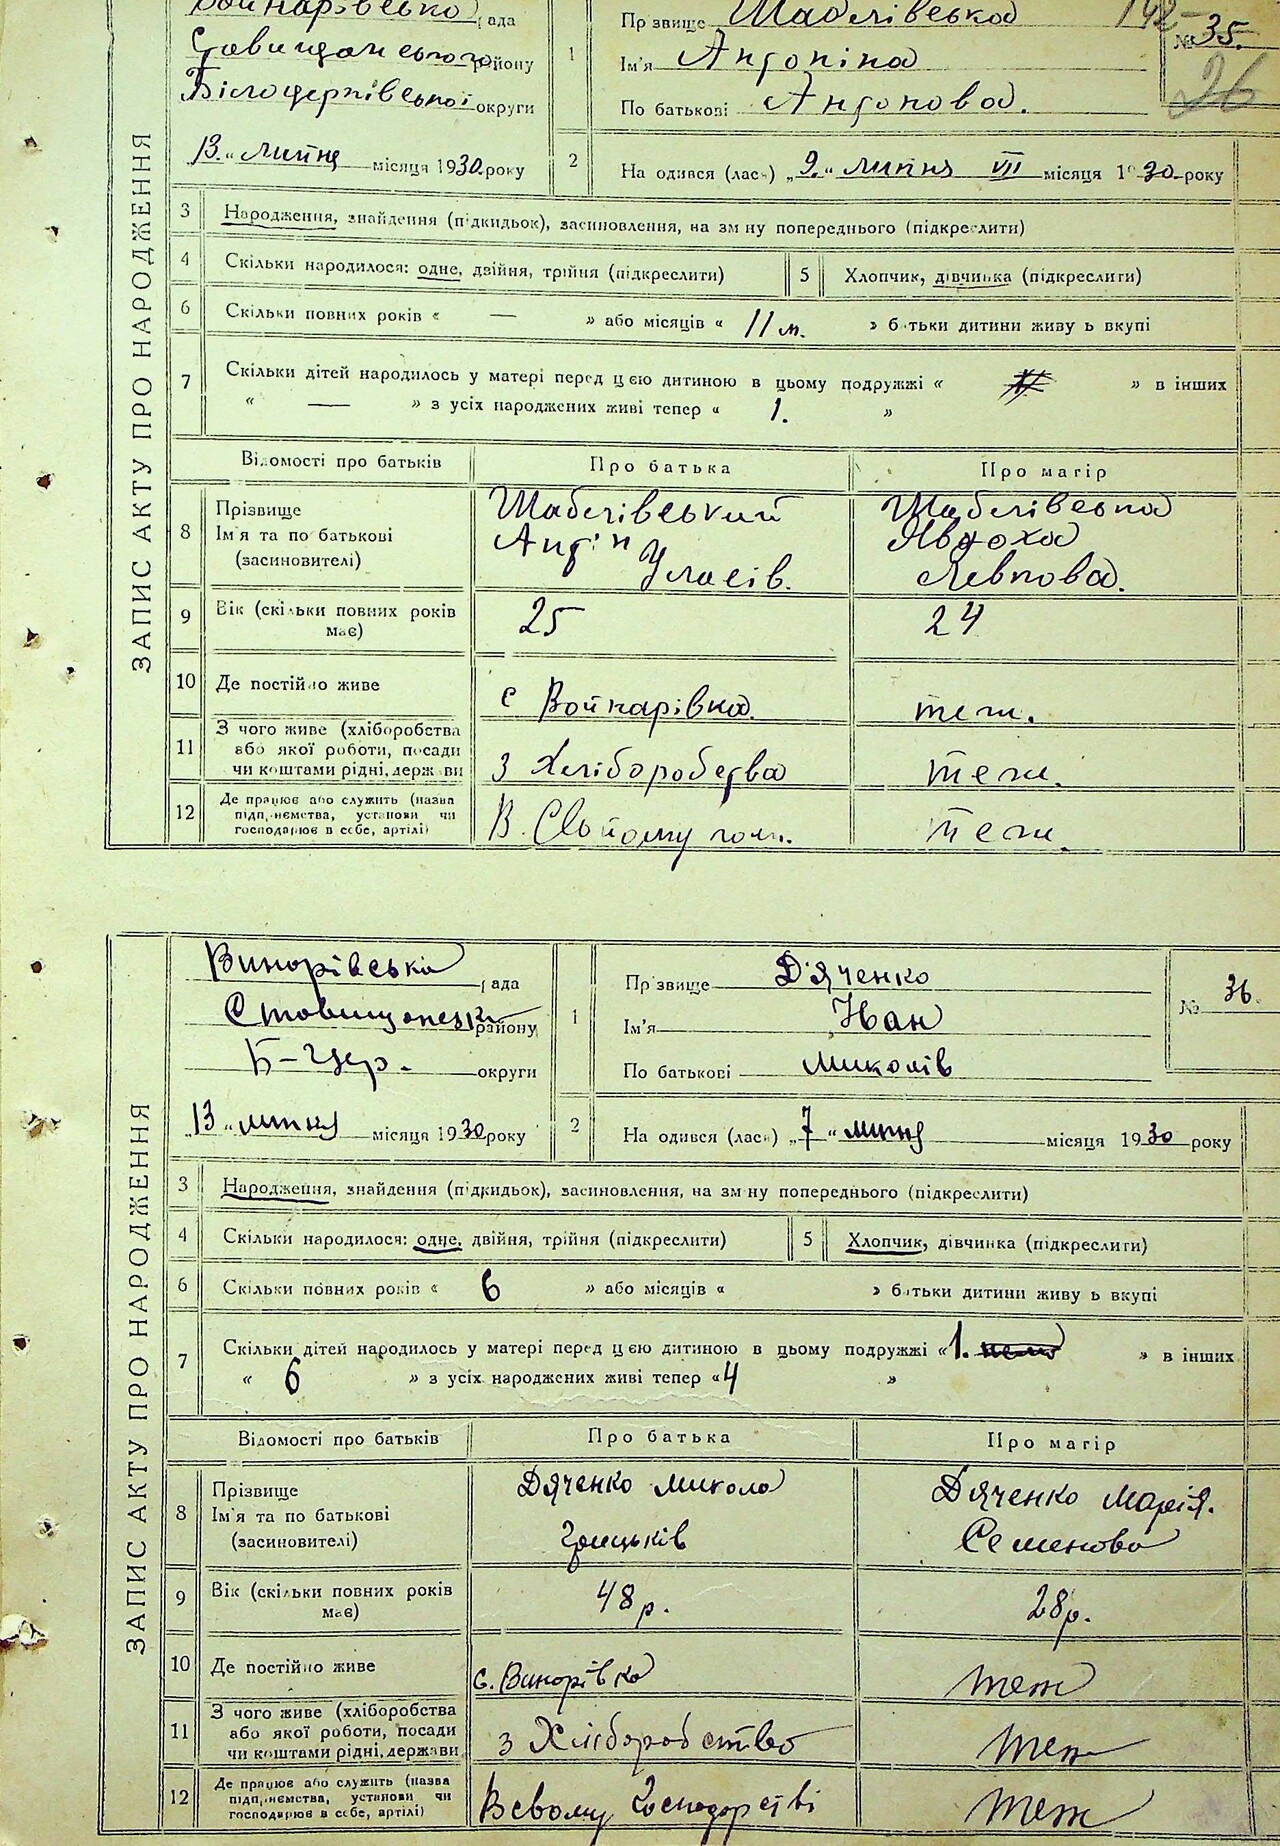 ЗАПИС АКТУ ПРО НАРОДЖЕННЯ
рада
району
Білоцерківської округи
13 " липня місяця 1930 року
1
Прізвище Шаблівська
Ім'я Антоніна
По батькові Антонова.
№ 35.
26
2
На одився (лась) „ 9. " липня VII місяця 1930 року
3 Народження, знайдення (підкидьок), засиновлення, на зміну попереднього (підкреслити)
4 Скільки народилося: одне, двійня, трійня (підкреслити)
5 Хлопчик, дівчинка (підкреслити)
6 Скільки повних років « — » або місяців « 11 м. » батьки дитини живуть вкупі
7 Скільки дітей народилось у матері перед цією дитиною в цьому подружжі « » в інших
« — » з усіх народжених живі тепер « 1. »
Відомості про батьків
Про батька
Про матір
8 Прізвище
Ім'я та по батькові
(засиновителі)
Шаблівський
Антін
Уласів.
Шаблівська
Явдоха
Левкова.
9 Вік (скільки повних років має)
25
24
10 Де постійно живе
с Войнарівка.
теж.
11 З чого живе (хліборобства
або якої роботи, посади
чи коштами рідні, держави
З Хліборобства
теж.
12 Де працює або служить (назва
підприємства, установи чи
господарює в себе, артілі)
В. Свойому
теж.
ЗАПИС АКТУ ПРО НАРОДЖЕННЯ
рада
району
Б-Цер. округи
„ 13 " липня місяця 1930 року
1
Прізвище Д'яченко
Ім'я Іван
По батькові Миколів
№ 36.
2
На одився (лась) „ 7 " липня місяця 1930 року
3 Народження, знайдення (підкидьок), засиновлення, на зміну попереднього (підкреслити)
4 Скільки народилося: одне, двійня, трійня (підкреслити)
5 Хлопчик, дівчинка (підкреслити)
6 Скільки повних років « 6 » або місяців « » батьки дитини живуть вкупі
7 Скільки дітей народилось у матері перед цією дитиною в цьому подружжі « 1. » в інших
« 6 » з усіх народжених живі тепер « 4 »
Відомості про батьків
Про батька
Про матір
8 Прізвище
Ім'я та по батькові
(засиновителі)
Дяченко Микола
Грицьків
Дяченко Марія.
Семенова
9 Вік (скільки повних років має)
48 р.
28 р.
10 Де постійно живе
с.
теж
11 З чого живе (хліборобства
або якої роботи, посади
чи коштами рідні, держави
з Хліборобство
теж
12 Де працює або служить (назва
підприємства, установи чи
господарює в себе, артілі)
Всвому господарстві
теж